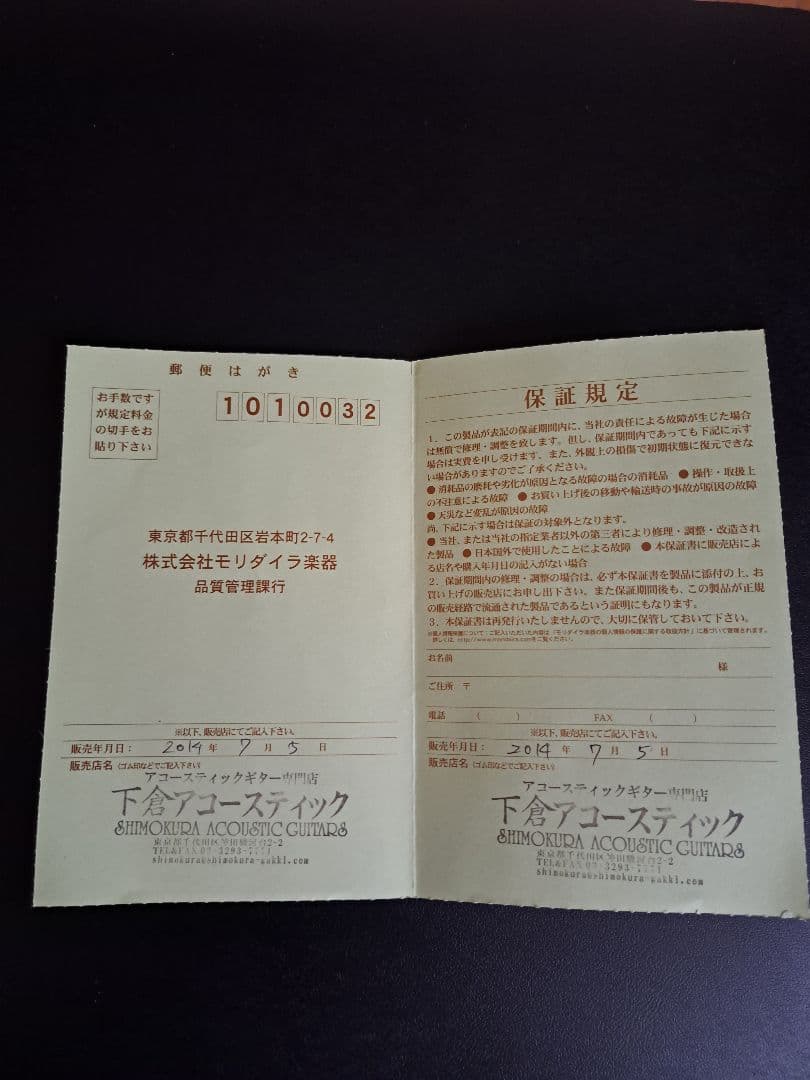 郵便はがき
お手数です
が規定料金
の切手をお
貼り下さい
1010032
東京都千代田区岩本町2-7-4
株式会社モリダイラ楽器
品質管理課行
※以下、販売店にてご記入下さい。
販売年月日： 2014 年 7 月 5 日
販売店名（ゴム印などでご記入下さい）
アコースティックギター専門店
下倉アコースティック
SHIMOKURA ACOUSTIC GUITARS
東京都千代田区神田駿河台2-2
TEL&FAX 03-3293-7771
shimokura@shimokura-gakki.com
保証規定
1．この製品が表記の保証期間内に、当社の責任による故障が生じた場合
は無償で修理・調整を致します。但し、保証期間内であっても下記に示す
場合は実費を申し受けます。また、外観上の損傷で初期状態に復元できな
い場合がありますのでご了承ください。
● 消耗品の磨耗や劣化が原因となる故障の場合の消耗品 ● 操作・取扱上
の不注意による故障 ● お買い上げ後の移動や輸送時の事故が原因の故障
● 天災など変乱が原因の故障
尚、下記に示す場合は保証の対象外となります。
● 当社、または当社の指定業者以外の第三者により修理・調整・改造され
た製品 ● 日本国外で使用したことによる故障 ● 本保証書に販売店によ
る店名や購入年月日の記入がない場合
2．保証期間内の修理・調整の場合は、必ず本保証書を製品に添付の上、お
買い上げの販売店にお申し出下さい。また保証期間後も、この製品が正規
の販売経路で流通された製品であるという証明にもなります。
3．本保証書は再発行いたしませんので、大切に保管しておいて下さい。
※個人情報保護について：ご記入いただいた内容は「モリダイラ楽器の個人情報の保護に関する取扱方針」に基づいて管理されます。
詳しくは、http://www.moridaira.comをご覧ください。
お名前 様
ご住所 〒
電話 （ ） FAX （ ）
※以下、販売店にてご記入下さい。
販売年月日： 2014 年 7 月 5 日
販売店名（ゴム印などでご記入下さい）
アコースティックギター専門店
下倉アコースティック
SHIMOKURA ACOUSTIC GUITARS
東京都千代田区神田駿河台2-2
TEL&FAX 03-3293-7771
shimokura@shimokura-gakki.com